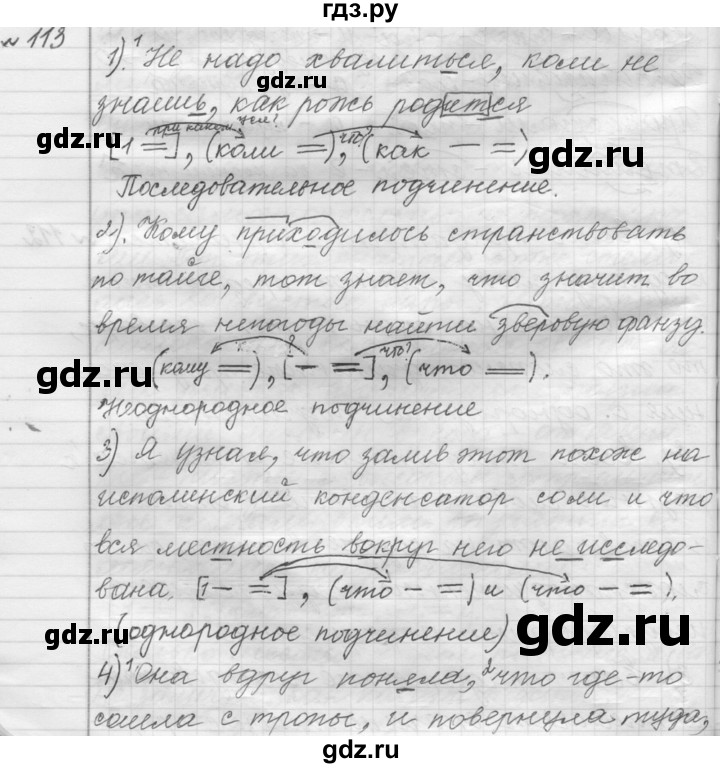 гдз.ру
№ 113
1).¹ Не надо хвалиться, коли не
знаешь, как рожь родится
[1 =], (коли =), (как — =)
при каком усл? что?
Последовательное подчинение.
2). Кому приходилось странствовать
по тайге, тот знает, что значит во
время непогоды найти зверовую фанзу.
(кому =), [— =], (что =).
? что?
Неоднородное подчинение
3) Я узнал, что залив этот похож на
исполинский конденсатор соли и что
вся местность вокруг него не исследо-
вана. [1 — =], (что — =) и (что — =).
(однородное подчинение)
4)¹ Она вдруг поняла,² что где-то
сошла с тропы, и повернула туда,
gdz.ru
gdz.ru
gdz.ru
gdz.ru
gdz.ru
gdz.ru
gdz.ru
гдз.ру